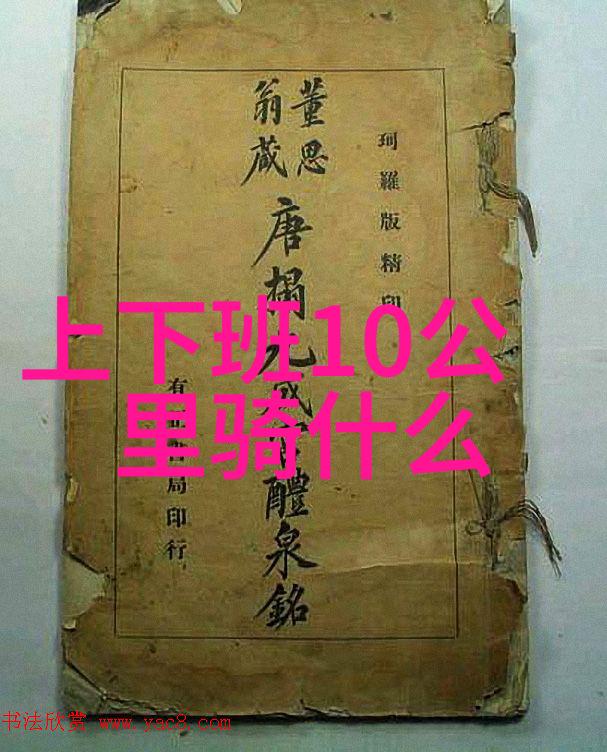 珂羅版精印
董思
翁蔵
唐搨九成宮醴泉銘
有正書局印行
上下班10公
里骑什么
书法欣赏 www.yac8.com